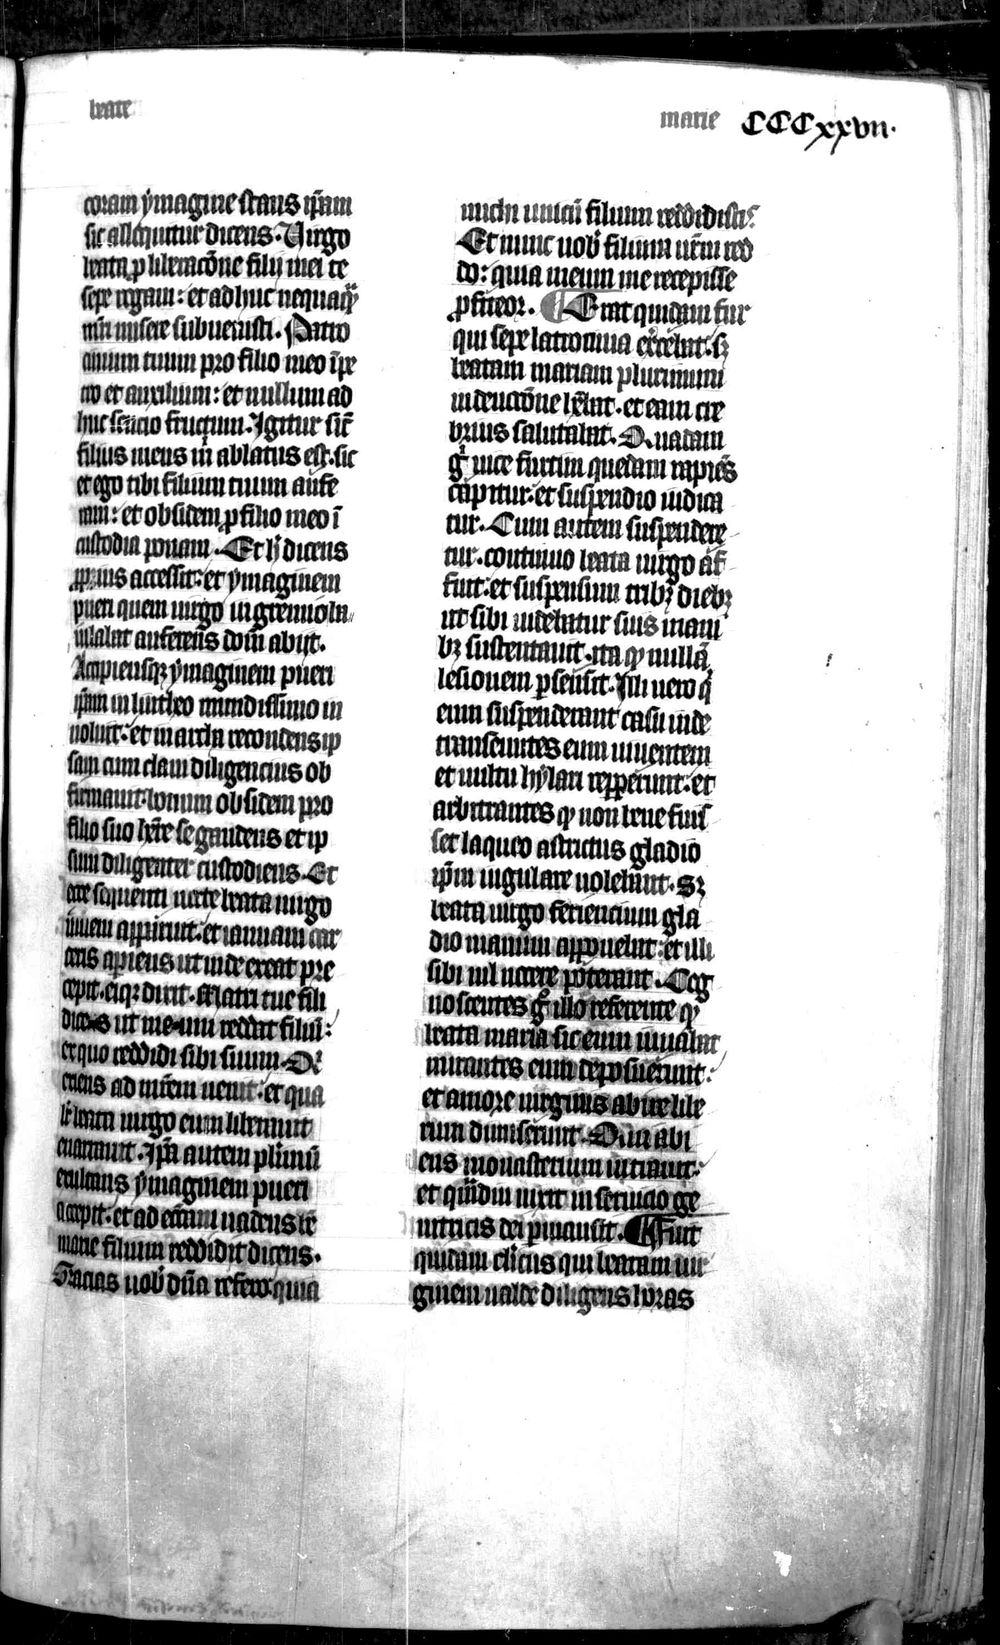 beate
marie CCCxxvii·
coram ymagine stans ip̄am
sic alloquitur dicens· Virgo
beata p̱ liberacōne filij mei te
sepe rogaui: et adhuc nequaq̄
m̄ri misere subuenisti. Patro
cinium tuum pro filio meo īpe
no et auxilium: et nullum ad
huc sencio fructum· Igitur sic̄
filius meus m̄ ablatus est· sic
et ego tibi filium tuum aufe
ram: et obsidem p̱ filio meo ī
custodia ponam. Et h̄ dicens
p̱pius accessit: et ymaginem
pueri quem uirgo in gremio ba
iulabat auferens domū abijt·
Accipiensqꝫ ymaginem pueri
ip̄am in lintheo mundissimo in
uoluit: et in archa recondens ip
sam cum claui diligencius ob
firmauit· bonum obsidem pro
filio suo hr̄e se gaudens et ip
sum diligenter custodiens. Et
ecce sequenti nocte beata uirgo
iuueni apparuit: et ianuam car
ceris aperiens ut inde exeat pre
cepit· eiqꝫ dixit· Matri tue fili
dices ut meum reddat filiū:
ex quo reddidi sibi suum· Qͥ
exiens ad mr̄em uenit: et qua
lit̄ beata uirgo eum liberauit
enarrauit. Ip̄a autem plrimū
exultans ymaginem pueri
accepit· et ad ecc̄iam uadens be
marie filium reddidit dicens·
Gracias uob̄ dn̄a refero· quia
michi unicū filium reddidistis
Et nunc uob̄ filium ur̄m red
do: quia meum me recepisse
p̱fiteor. ¶ Erat quidam fur
qui sepe latrocinia exc̄ebat· sꝫ
beatam mariam plurimum
in deuocōne hēbat· et eam cre
brius salutabat. Quadam
g̊ uice furtim quedam rapiēs
capitur: et suspendio iudica
tur. Cum autem suspendere
tur· continuo beata uirgo af
fuit: et suspensum tribꝫ diebꝫ
ut sibi uidebatur suis mani
bꝫ sustentauit· ita ꝙ nullā
lesionem p̱sensit. Illi uero q̄
eum suspenderant casu inde
transeuntes eum uiuentem
et uultu hylari repperunt: et
arbitrantes ꝙ non bene fuis
set laqueo astrictus gladio
ip̄m iugulare uolebant· Sꝫ
beata uirgo feriencium gla
dio manum apposuebat: et illi
sibi nil nocere poterant. Cog
noscentes g̊ illo referente ꝙ
beata maria sic eum iuuabat
mirantes eum deposuerunt:
et amore uirginis abire libe
rum dimiserunt. Qui abi
ens monasterium intrauit·
et q̄mdiu uixit in seruicio ge
nitricis dei p̱mansit. ¶ Fuit
quidam cl̄icus qui beatam uir
ginem ualde diligens horas